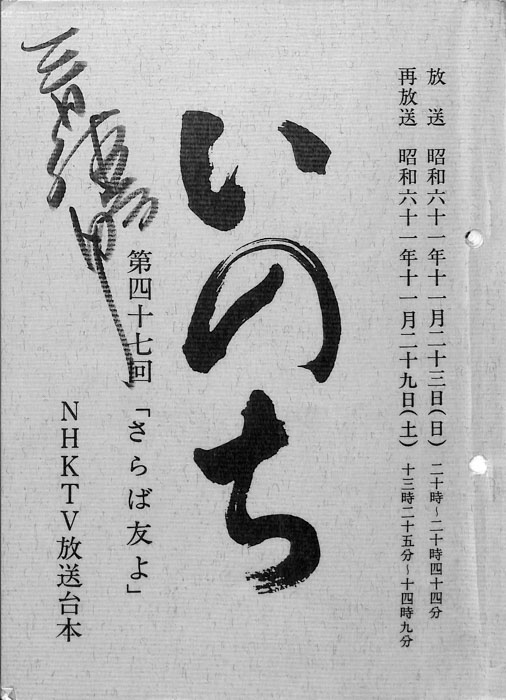 放送 昭和六十一年十一月二十三日(日) 二十時~二十時四十四分
再放送 昭和六十一年十一月二十九日(土) 十三時二十五分~十四時九分
いのち
第四十七回 「さらば友よ」
NHKTV放送台本